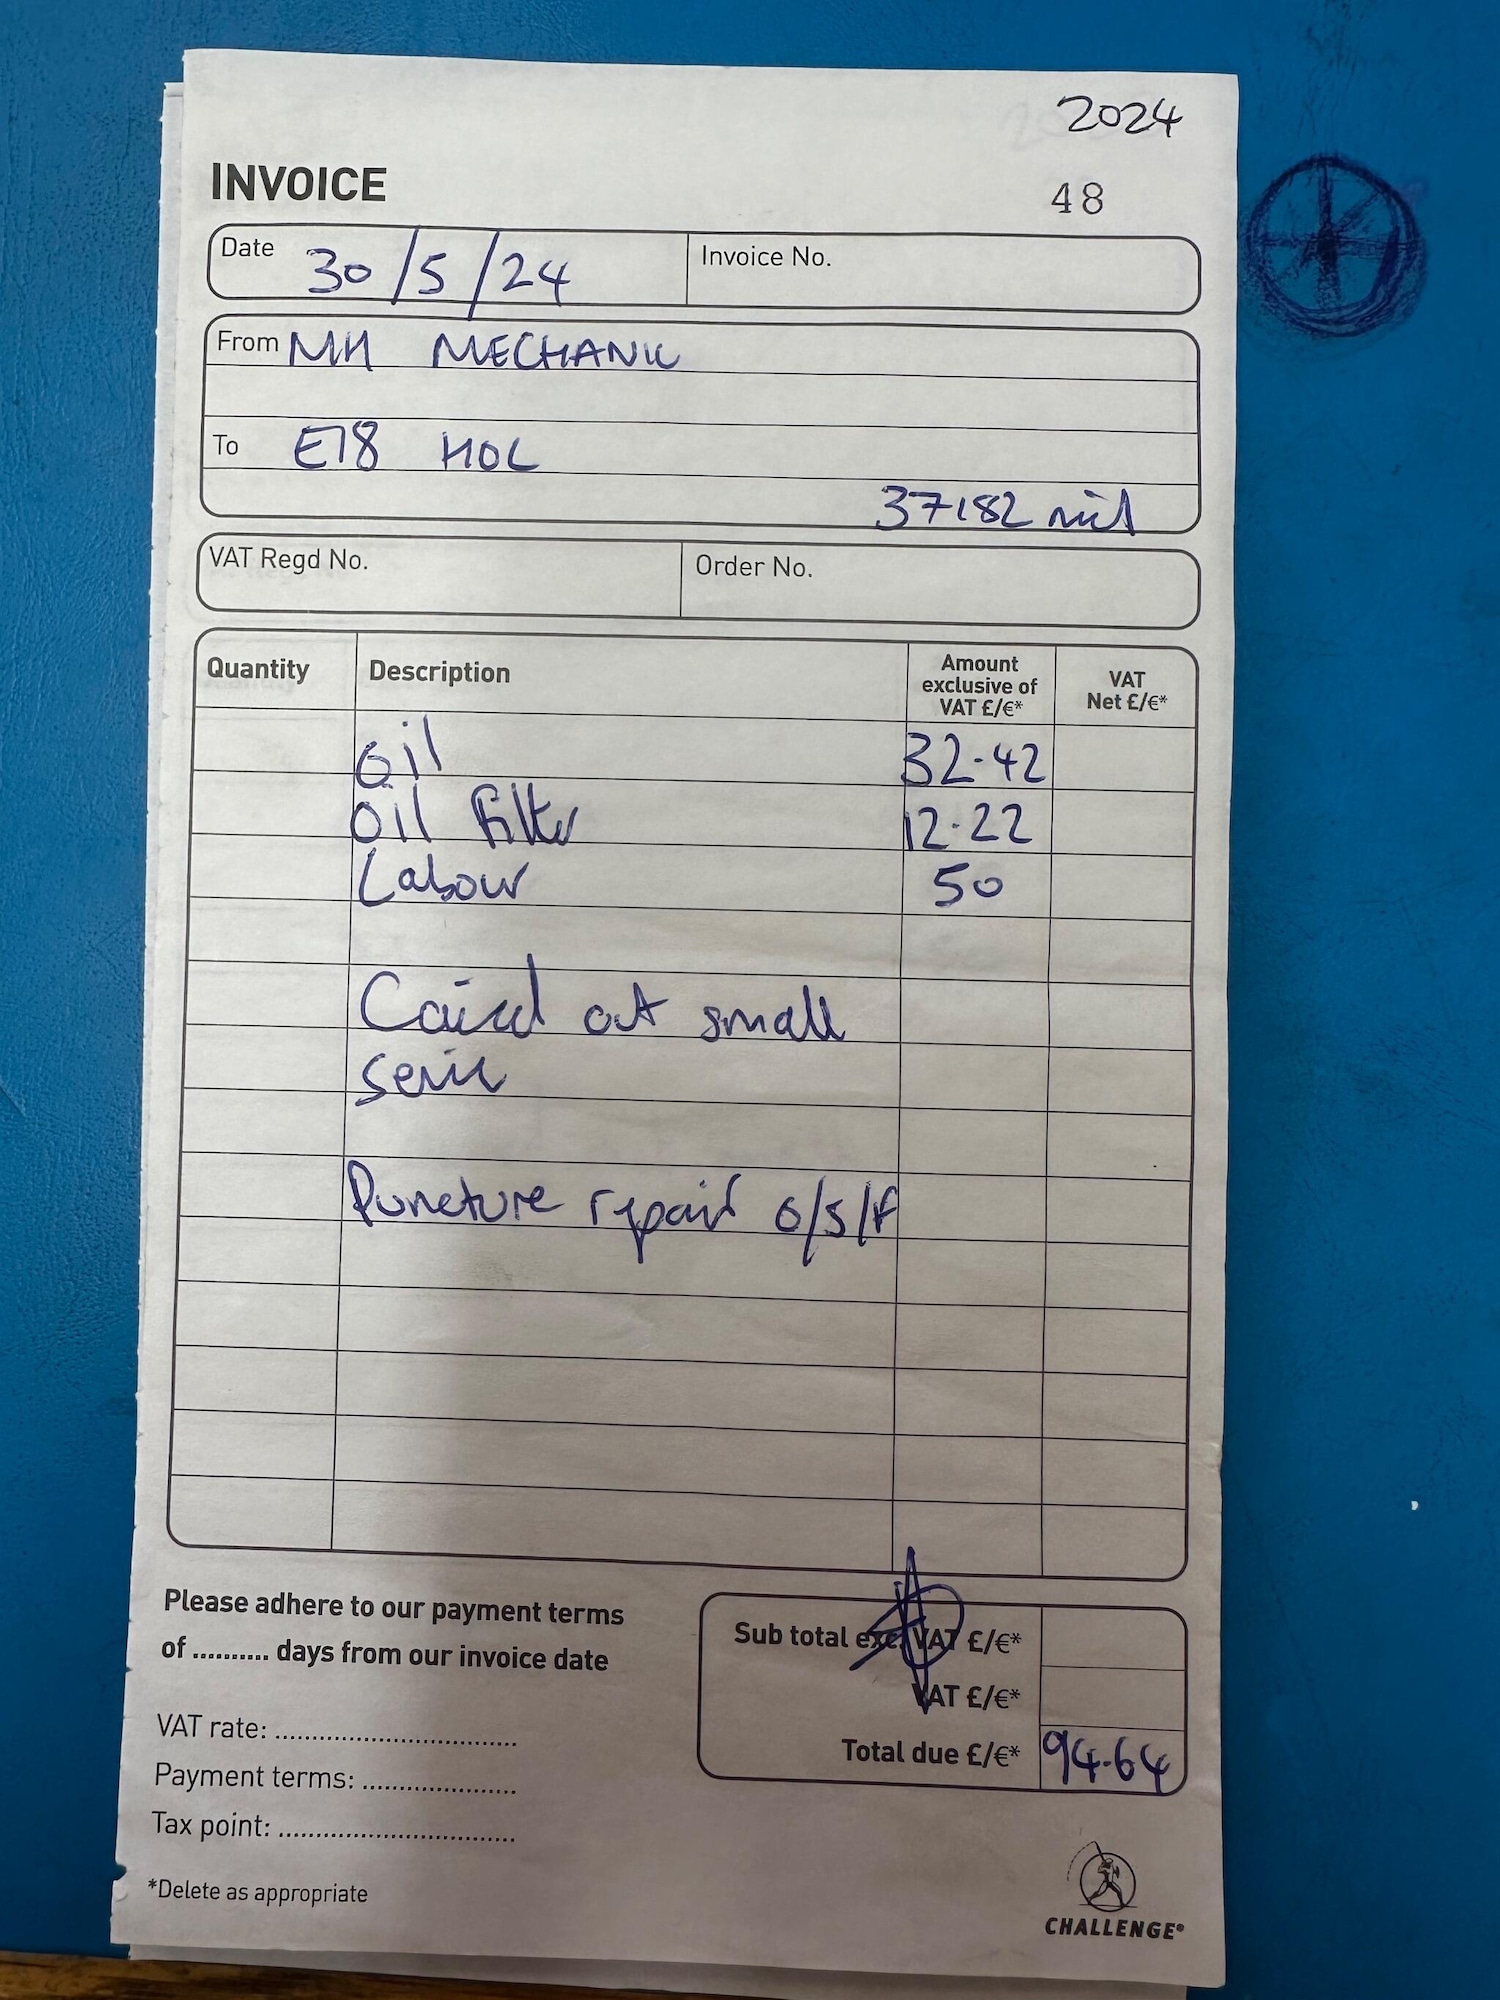 2024
INVOICE
48
Date 30/5/24 Invoice No.
From MH MECHANIC
To E78 HOL
37182 mil
VAT Regd No. Order No.
Quantity Description Amount exclusive of VAT £/€* VAT Net £/€*
Oil 32.42
Oil filter 12.22
Labour 50
Caired out small
servic
Puncture repair o/s/f
Please adhere to our payment terms
of .......... days from our invoice date
Sub total exc. VAT £/€*
VAT £/€*
Total due £/€* 94.64
VAT rate: ..........
Payment terms: ..........
Tax point: ..........
*Delete as appropriate
CHALLENGE®